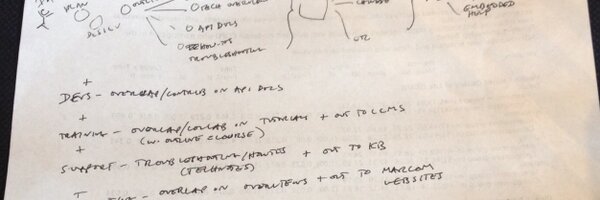 PLAN
DESIGN
API DOCS
TROUBLESHOOTING
ETC
EMBEDDED
HELP
+
DEVS - OVERLAP/CONTRIB ON API DOCS
+
TRAINING - OVERLAP/COLLAB ON TUTORIALS + OUT TO LCMS
(W. ONLINE COURSE)
+
SUPPORT - TROUBLESHOOTING/HOWTOS + OUT TO KB
(TECHNOTES)
- OVERLAP ON OVERVIEWS + OUT TO MARCOM
WEBSITES